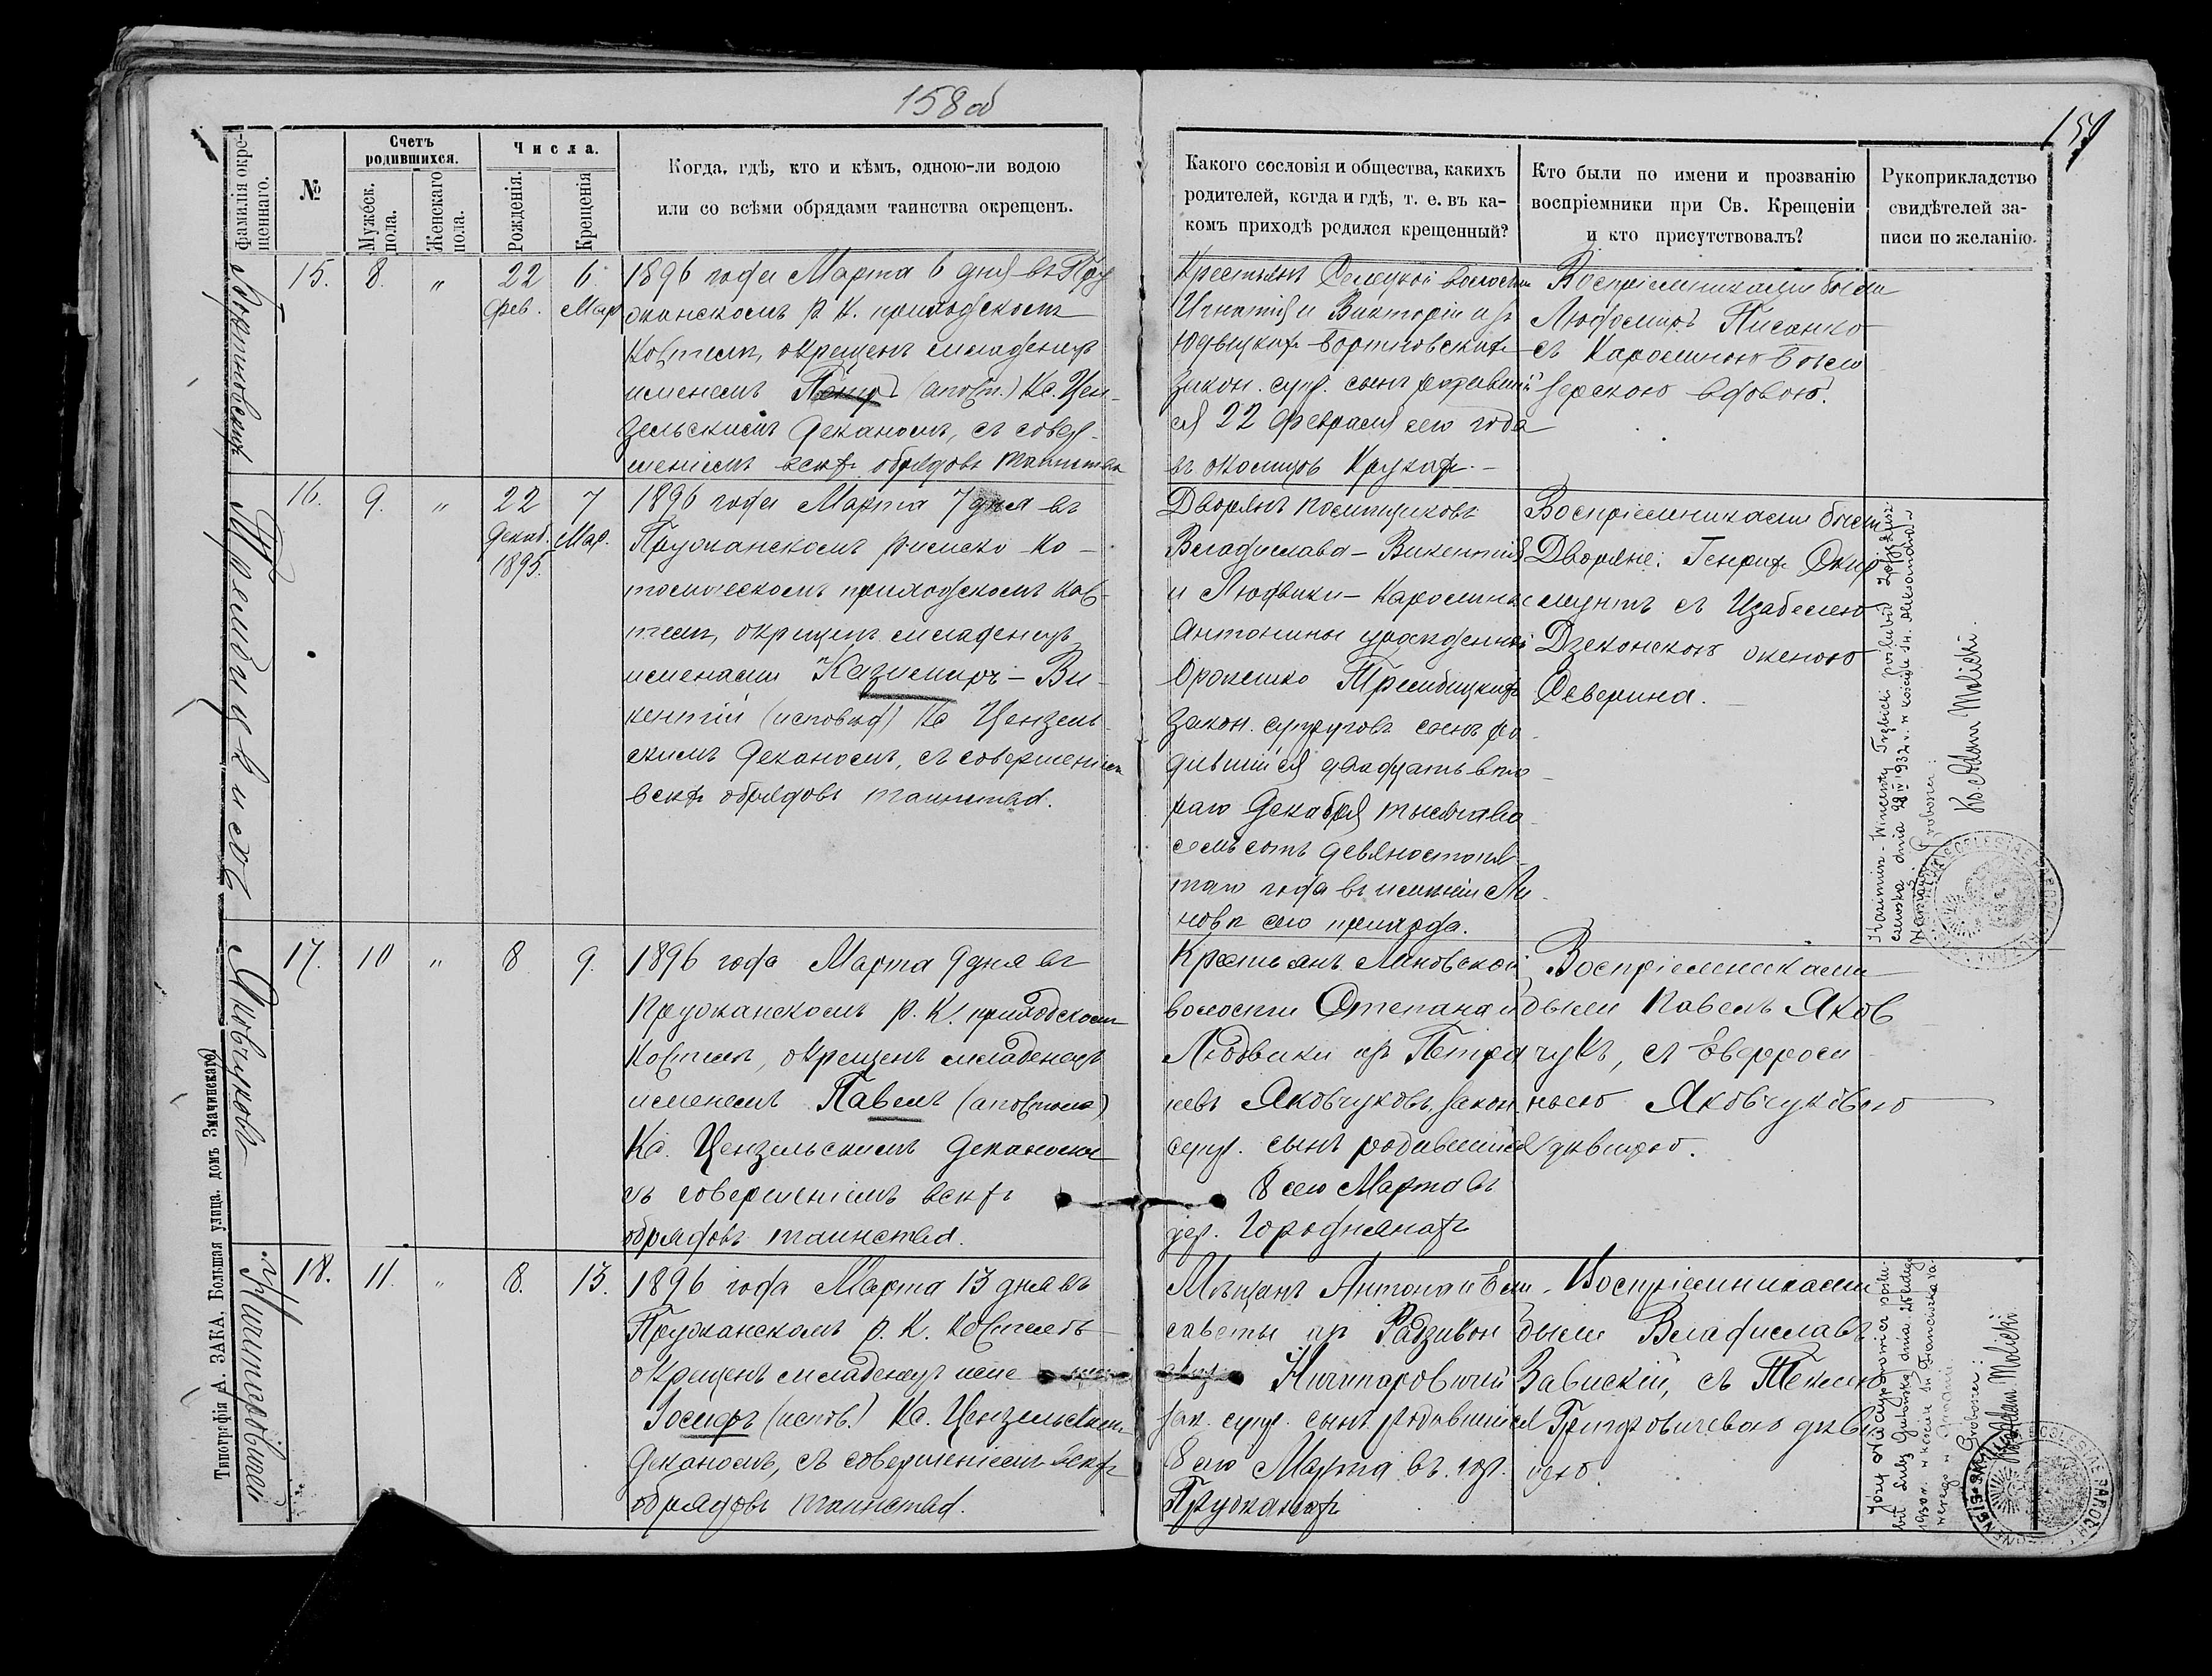 158 об
159
Фамилія окре-
щеннаго.
№
Счетъ
родившихся.
Мужеск.
пола.
Женскаго
пола.
Числа.
Рожденія.
Крещенія
Когда, гдѣ, кто и кѣмъ, одною-ли водою
или со всѣми обрядами таинства окрещенъ.
Какого сословія и общества, какихъ
родителей, когда и гдѣ, т. е. въ ка-
комъ приходѣ родился крещенный?
Кто были по имени и прозванію
воспріемники при Св. Крещеніи
и кто присутствовалъ?
Рукоприкладство
свидѣтелей за-
писи по желанію.
15.
8.
„
22
фев.
6
Мар
1896 года Марта 6 дня въ Пру
жанскомъ р. К. приходскомъ
костелѣ, окрещенъ младенецъ
именемъ Петръ (апост.) Кс. Цен-
зельскимъ Деканомъ, съ совер-
шеніемъ всѣхъ обрядовъ таинства
Крестьянъ Селецкой волости
Игнатія и Викторіи изъ
закон. супр. сынъ родивший
ся 22 февраля сего года
въ околицѣ Крукахъ.
Воспріемниками были
Людомиръ Писанко
съ Каролиною
вдовою.
Трембицкихъ
16.
9.
„
22
Декаб.
1895.
7
Мар.
1896 года Марта 7 дня въ
Пружанскомъ римско-ка-
толическомъ приходскомъ кос-
телѣ, окрещенъ младенецъ
именами Казимиръ-Ви-
кентій (исповѣд) Кс Цензель-
скимъ Деканомъ, съ совершеніемъ
всѣхъ обрядовъ таинства.
Дворянъ помѣщиковъ
Владислава-Викентія
и Людвики-Каролины
Антонины урожденной
Оржешко Трембицкихъ
закон. супруговъ сынъ ро-
дившійся двадцать вто-
раго Декабря тысяча во-
семьсотъ девяностопя-
таго года въ имѣніи Ли-
новѣ сего прихода.
Воспріемниками были
Дворяне: Генрихъ Скир-
мунтъ съ Изабелею
Дзеконскою женою
Северина.
Kazimierz-Wincenty Trębicki poślubił Zofję Łusz-
czewską dnia 28 IV 1932 r. w kościele św. Aleksandra w
Warszawie. Proboszcz:
Ks. Adam Malicki.
Яковчуковъ
17.
10
„
8
9.
1896 года Марта 9 дня въ
Пружанскомъ р. К. приходскомъ
костелѣ, окрещенъ младенецъ
именемъ Павелъ (апостола)
Кс. Цензельскимъ Деканомъ
съ совершеніемъ всѣхъ
обрядовъ таинства.
Крестьянъ Линовской
волости Степана и
Людвики изъ Петра
чукъ Яковчуковъ закон
супр. сынъ родившійся
8 сего Марта въ
дер. Городнянахъ
Воспріемниками
были Павелъ Яков
чукъ, съ Евфроси
ньею Яковчуковою
дѣвицею.
Ничипоровичей
18.
11.
„
8.
13.
1896 года Марта 13 дня въ
Пружанскомъ р. К. костелѣ
окрещенъ младенецъ име
Іосифъ (испов.) Кс. Цензельскимъ
Деканомъ, съ совершеніемъ всѣхъ
обрядовъ таинства.
Мѣщанъ Антона и Ели-
саветы изъ Радзивон
Ничипоровичей
зак. супр. сынъ родившійся
8 сего Марта въ гор.
Пружанахъ
Воспріемниками
были Владиславъ
Завискій, съ Теклею
Григоровичевою дѣви
цею
Józef Niczyporowicz poślu-
bił
Proboszcz:
Ks. Adam Malicki
Типографія А. ЗАКА, Большая улица, домъ Змачинскаго